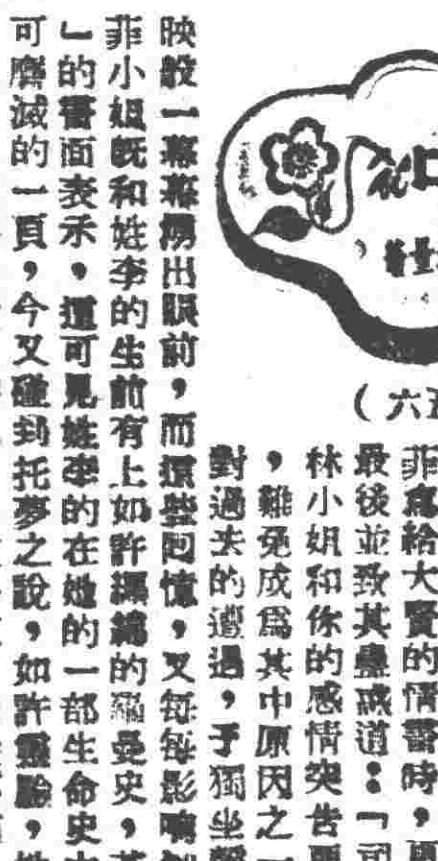 （六五
菲寫給大賢的情書時，
最後並致其忠誠道：「司
林小姐和你的感情突告
，難免成爲其中原因之一
對過去的遭遇，于獨坐
映般一幕幕湧出眼前，而這些回憶，又每每影响
菲小姐既和姓李的生前有上如許纒綿的羅曼史，
」的書面表示，這可見姓李的在她的一部生命史
可磨滅的一頁，今又碰到托夢之說，如許靈驗，